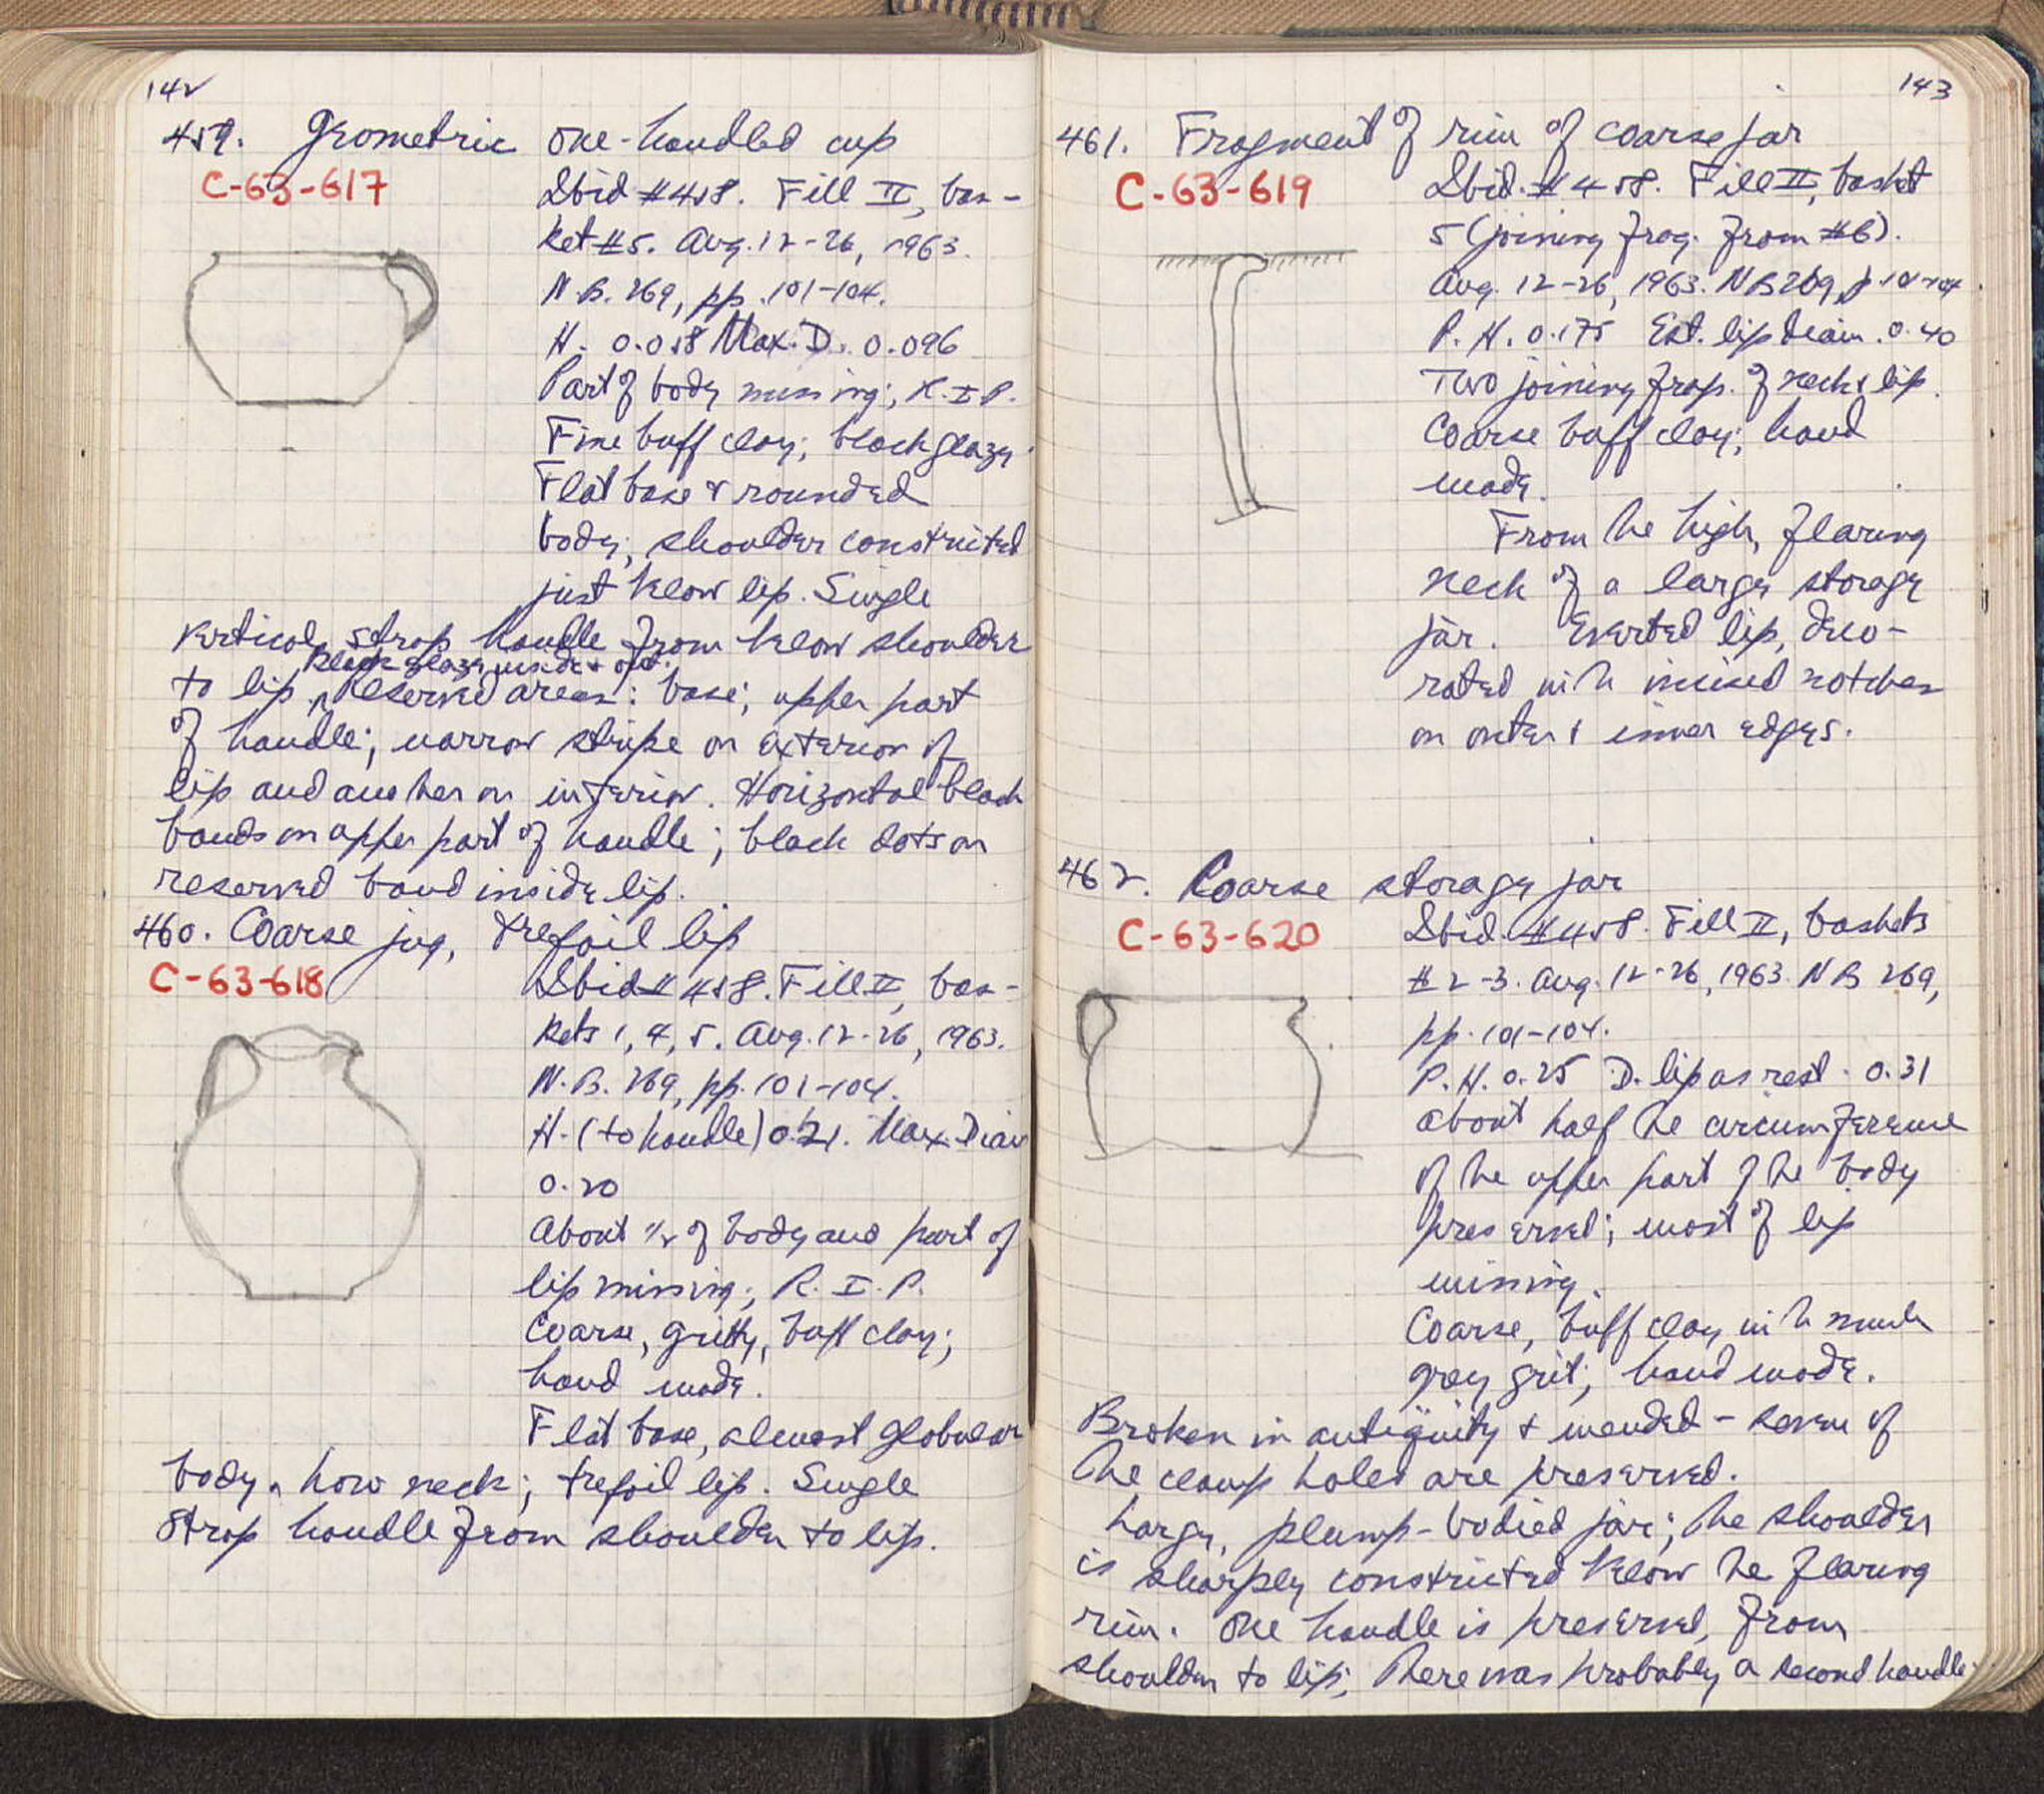 142
459. Geometric one-handled cup
C-63-617
Ibid #458. Fill II, bas-
ket #5. Aug. 12-26, 1963.
N.B. 269, pp. 101-104.
H. 0.058 Max. D. 0.096
Part of body missing; R.I.P.
Fine buff clay; black glaze.
Flat base & rounded
body; shoulder constricted
just below lip. Single
vertical strap handle from below shoulder
Black glaze inside & out.
to lip. Reserved areas: base; upper part
of handle; narrow stripe on exterior of
lip and another on interior. Horizontal black
bands on upper part of handle; black dots on
reserved band inside lip.
460. Coarse jug, trefoil lip
C-63-618
Ibid # 458. Fill II, bas-
kets 1, 4, 5. Aug. 12-26, 1963.
N.B. 269, pp. 101-104.
H. (to handle) 0.21. Max. Diam
0.20
About 1/2 of body and part of
lip missing; R.I.P.
Coarse, gritty, buff clay;
hand made.
Flat base, almost globular
body. Low neck; trefoil lip. Single
strap handle from shoulder to lip.
143
461. Fragment of rim of coarse jar
C-63-619
Ibid. #458. Fill II, basket
5 (joining frag. from #6).
Aug. 12-26, 1963. NB 269, p. 101-104
P.H. 0.175 Est. lip diam. 0.40
Two joining frags. of neck & lip.
Coarse buff clay; hand
made.
From the high, flaring
neck of a large storage
jar. Everted lip, deco-
rated with incised notches
on outer & inner edges.
462. Coarse storage jar
C-63-620
Ibid #458. Fill II, baskets
#2-3. Aug. 12-26, 1963. NB 269,
pp. 101-104.
P.H. 0.25 D. lip as rest. 0.31
About half the circumference
of the upper part of the body
preserved; most of lip
missing.
Coarse, buff clay with much
gray grit; hand made.
Broken in antiquity & mended - seven of
the clamp holes are preserved.
Large, plump-bodied jar; the shoulder
is sharply constricted below the flaring
rim. One handle is preserved, from
shoulder to lip; there was probably a second handle